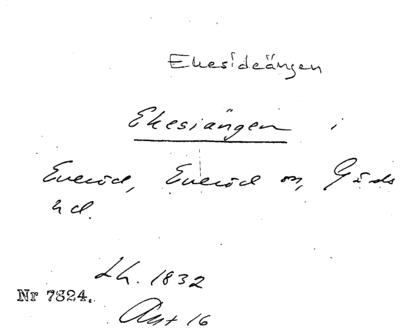 Ekesideängen
Ekesiängen i
Everöd, Everöd sn, Gärds
hd.
Lh. 1832
Nr 7824.
Akt 16